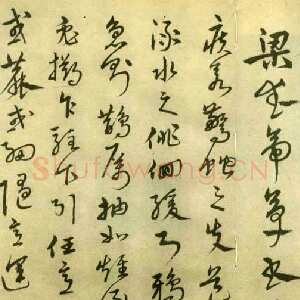 梁武帝草書
疾若驚蛇之失
淥水之徘徊緩則鴉
急則鵲厲抽如雉
兔擲乍駐乍引任意
或麁或細隨意運